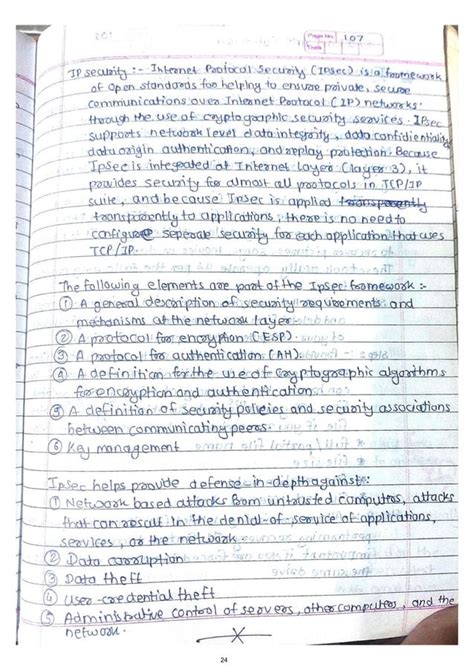 Page No. 107
Date
IP security :- Internet Protocol Security (IPsec) is a framework
of open standards for helping to ensure private, secure
communications over Internet Protocol (IP) networks.
through the use of cryptographic security services. IPsec
supports network level data integrity, data confidientiality
data origin authentication, and replay protection. Because
IPsec is integrated at Internet layer (layer 3), it
provides security for almost all protocols in TCP/IP
suite, and because Ipsec is applied transparently
transparently to applications, there is no need to
configure seperate security for each application that uses
TCP/IP.
The following elements are part of the Ipsec framework :-
① A general description of security requirements and
mechanisms at the network layer
② A protocol for encryption (ESP).
③ A protocol for authentication (AH).
④ A definition for the use of cryptographic algorithms
for encryption and authentication.
⑤ A definition of security policies and security associations
between communicating peers.
⑥ Key management
Ipsec helps provide defense-in-depth against:
① Network based attacks from untrusted computers, attacks
that can result in the denial-of-service of applications,
services, or the network
② Data corruption
③ Data theft
④ User-credential theft
⑤ Administrative control of servers, other computers, and the
network.
24